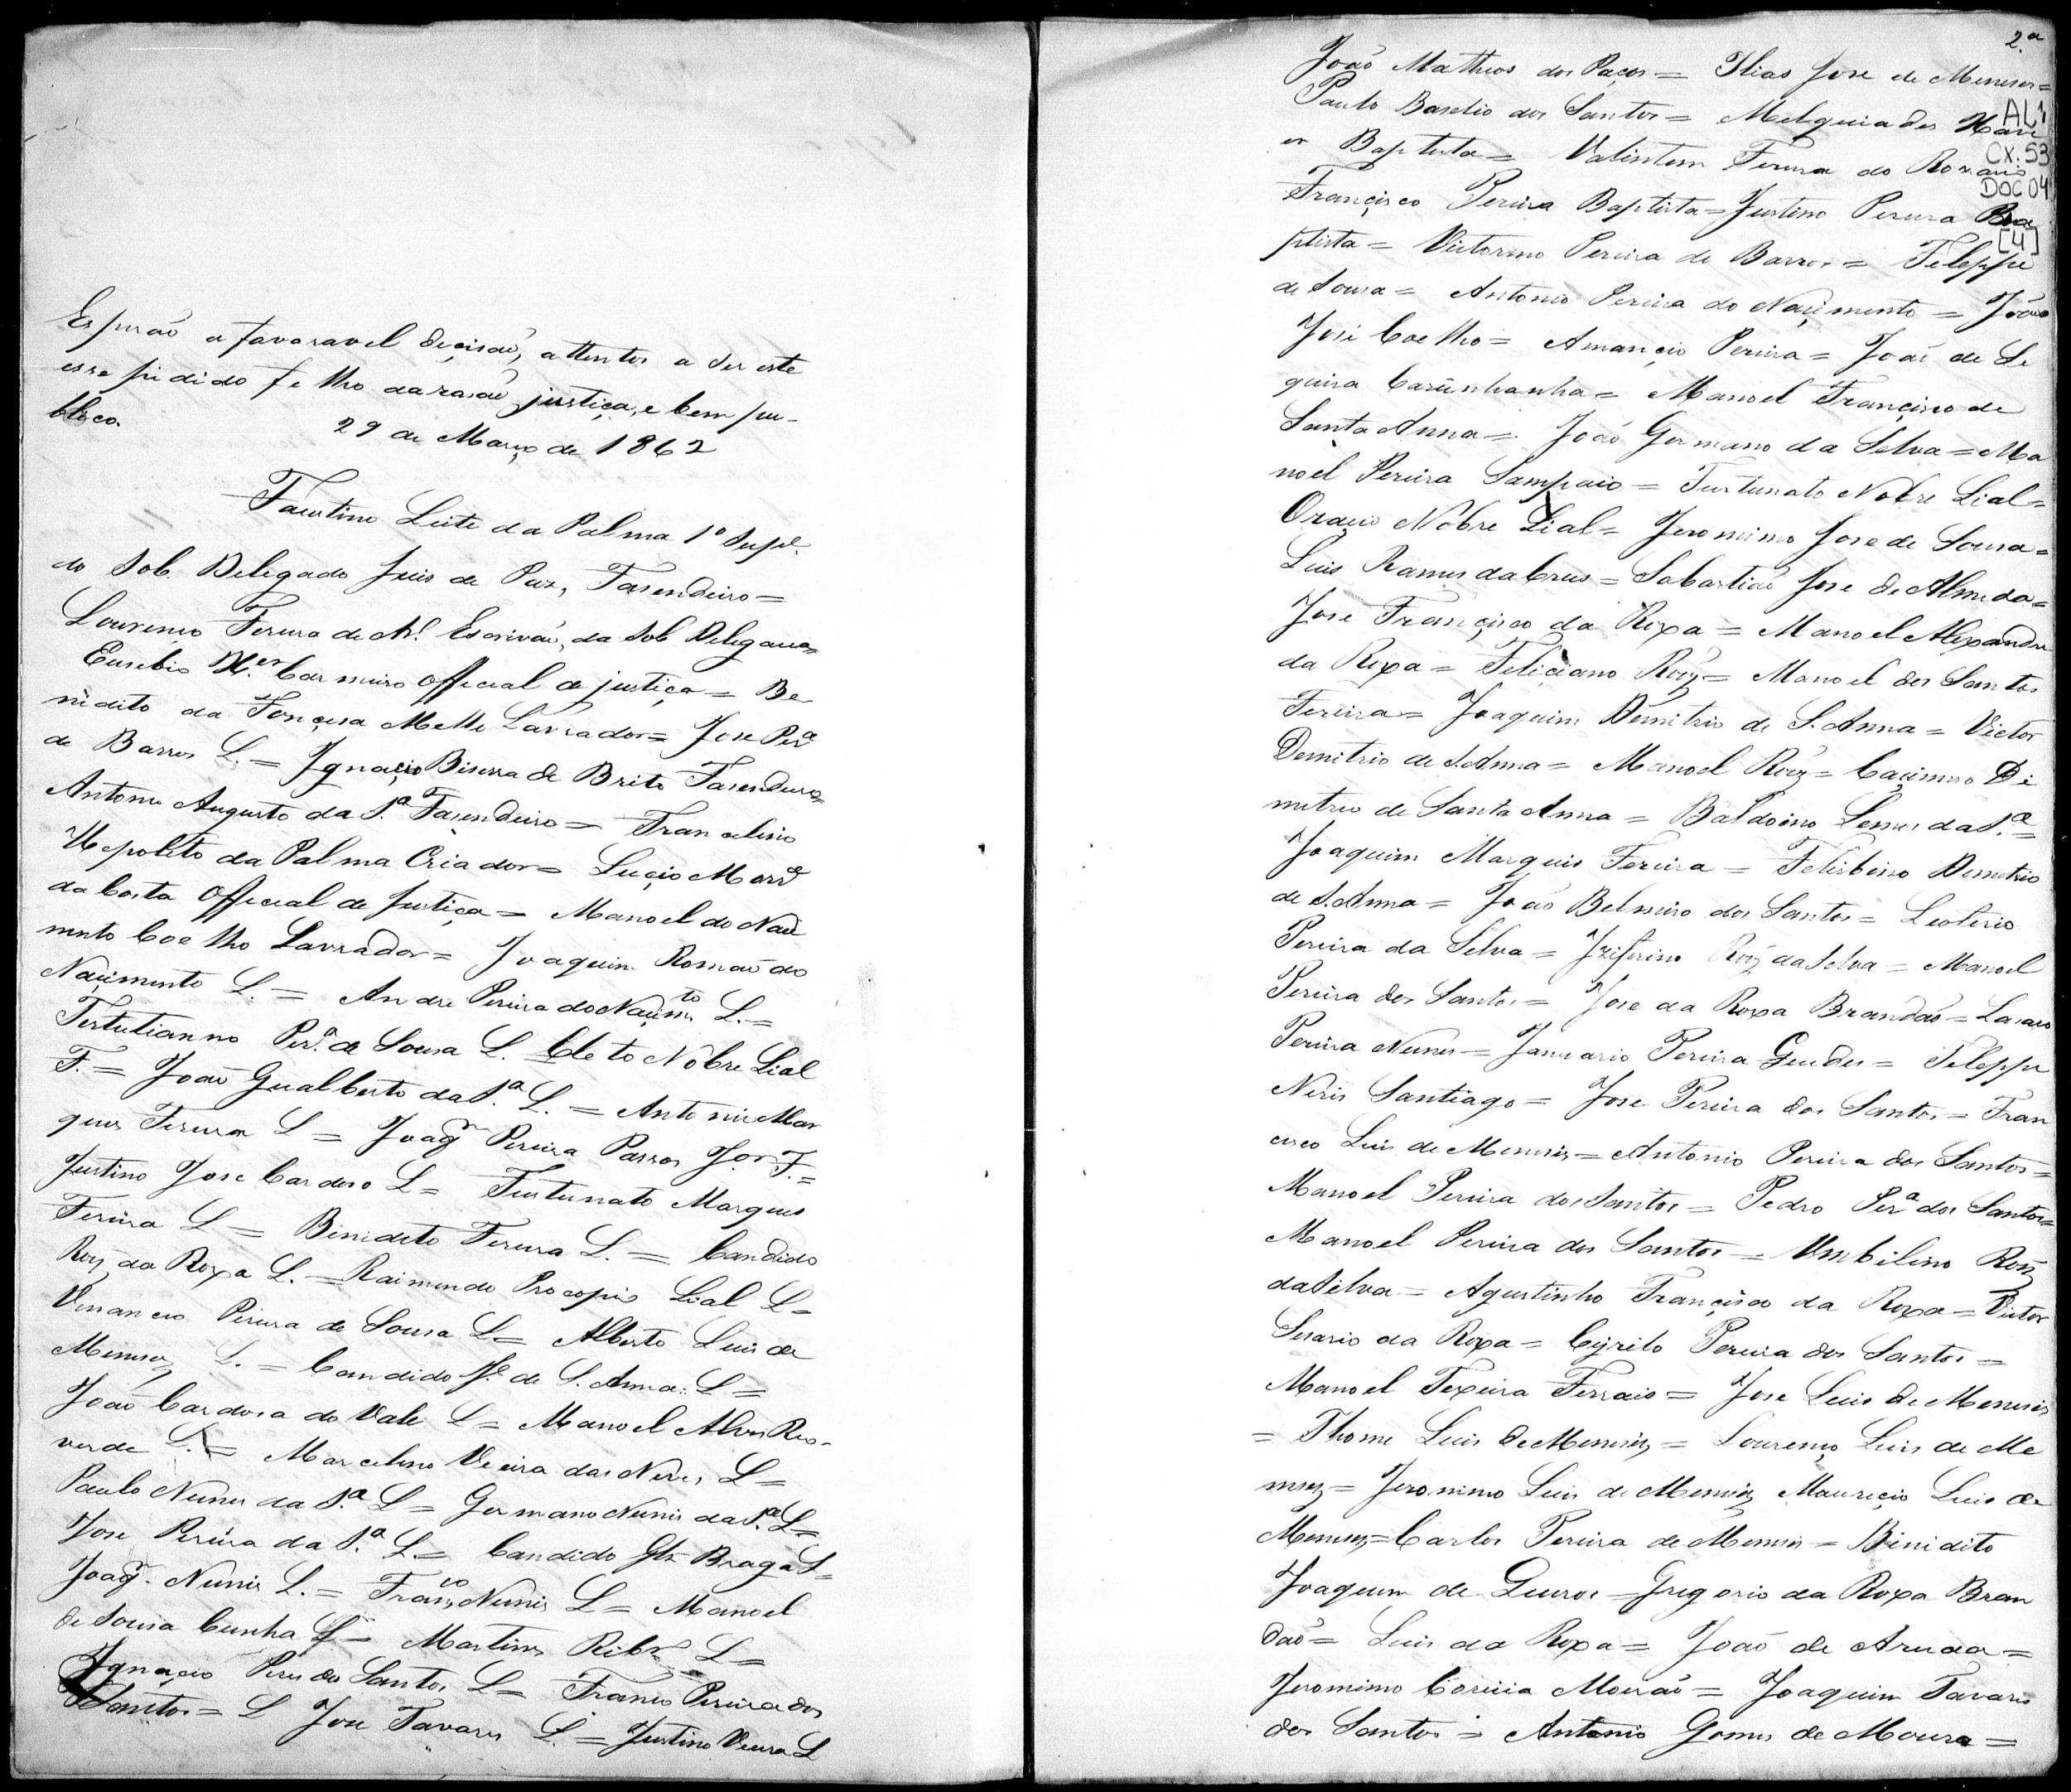 Esperão a favoravel decisão, attentos a ser este
esse pidido felho da rasaõ justiça, e bem pu-
blico.
29 de Março de 1862
Faustino Leite da Palma 1º Supl.
do Sob. Delegado Juis de Paz, Fasendeiro =
Lourenço Fereira de Ar.l Escrivaõ, da Sob Delegacia =
Eusebio X.er Carneiro Official de justiça = Be
nidito da Fonçeca Mello Lavrador = Jose Per.a
de Barros L. = Ignaçio Biserra de Brito Fasendeiro =
Antonio Augusto da S.a Fasendeiro = Francelino
Hepolito da Palma Criador = Luçio Mor.a
da Costa Official de Justiça = Manoel do Naci
mento Coelho Lavrador = Joaquim Romaõ do
Naçimento L. = Andre Pereira do Naçim.to L. =
Tertulianno Per.a de Sousa L. Cleto Nobre Lial
F. = Joaõ Gualberto da S.a L. = Antonio Mar
ques Fereira L = Joaq.m Pereira Passos J.or F. =
Justino Jose Cardoso L = Furtunato Marques
Fereira L = Binidito Fereira L. = Candido
Roiz da Roxa L. = Raimundo Procopio Lial L =
Venancio Pereira de Sousa L = Alberto Luis de
Menises L. = Candido Je. de S. Anna L =
Joaõ Cardoso do Vale L = Manoel Alves Rio-
verde L. = Marcelino Vieira das Neves L =
Paulo Nunes da S.a L = Germano Nunis da S.a L =
Jose Pereira da S.a L = Candido Glz Braga L =
Joaq. Nunis L. = Fran.co Nunis L = Manoel
de Sousa Cunha L = Martins Ribr.o L =
Ignaçio Pereira dos Santos L = Franco Pereira dos
Santos = L Jose Tavares L. = Justino Vieira L
2.a
AL1
CX: 53
DOC 04
[4]
João Matheos dos Paços = Ilias Jose de Meneses =
Paulo Baselio dos Santos = Melquiades Xavi
er Baptista = Valintim Fereira do Rosario
Françisco Pereira Baptista = Justino Pereira Ba
ptista = Victorino Pereira de Barros = Feleppe
de Sousa = Antonio Pereira do Naçimento = João
José Coelho = Amançio Pereira = Joaõ de Se
queira Carinhanha = Manoel Françisco de
Santa Anna = Joaõ Germano da Selva = Ma
noel Pereira Sampaio = Furtunato Nobre Lial =
Oraçio Nobre Lial = Jeronimo Jose de Sousa =
Luis Ramos da Crus = Sabastiaõ Jose de Almeda =
Jose Françisco da Roxa = Manoel Alexandre
da Roxa = Feliciano Roiz = Manoel dos Santos
Fereira = Joaquim Demitrio de S. Anna = Victor
Demitrio de S. Anna = Manoel Roiz = Caçimiro De
mitrio de Santa Anna = Baldoino Lemos da S.a =
Joaquim Marquis Fereira = Felisbino Demitrio
de S. Anna = Joaõ Belmiro dos Santos = Leoterio
Pereira da Selva = Jziferino Roiz da Selva = Manoel
Pereira dos Santos = Jose da Roxa Brandaõ = Lasaro
Pereira Nunes = Januario Pereira Guedes = Feleppe
Neris Santiago = Jose Pereira dos Santos = Fran
cisco Luis de Menisis = Antonio Pereira dos Santos =
Manoel Pereira dos Santos = Pedro Per.a dos Santos =
Manoel Pereira dos Santos = Umbilino Roiz
da Silva = Agustinho Françisco da Roxa = Victor
Sesario da Roxa = Cyrilo Pereira dos Santos =
Manoel Texeira Ferrais = Jose Luis de Menisis
= Thome Luis de Menisis = Lourenço Luis de Me
nisez = Jeronimo Luis de Menisis Mauriçio Luis de
Menises = Carlos Pereira de Menisis = Binidito
Joaquim de Queiros = Grigorio da Roxa Bran
daõ = Luis da Roxa = Joaõ de Aruda =
Jeronimo Correia Mouraõ = Joaquim Tavares
dos Santos = Antonio Gomes de Moura =